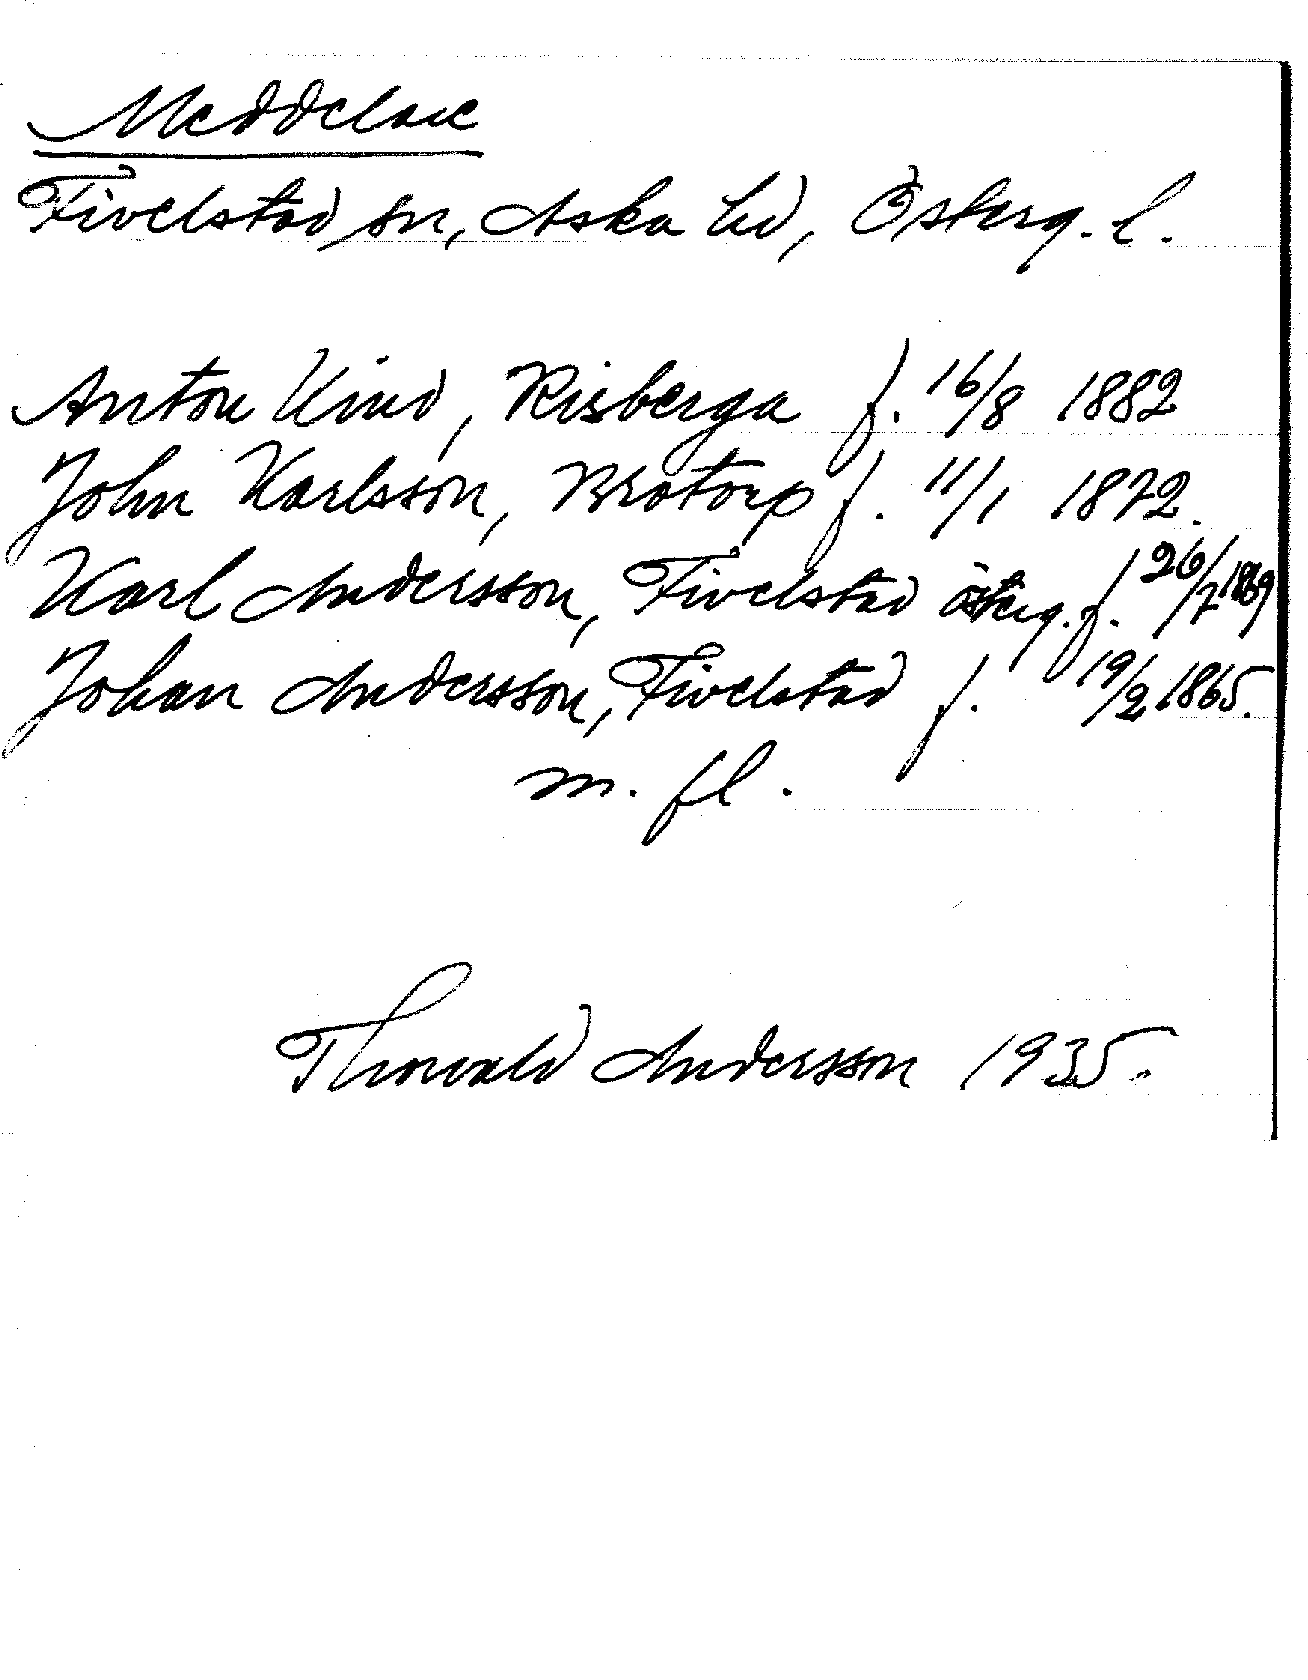 Meddelare
Fivelstad sn, Aska hd, Österg. l.
Anton Kind, Risberga f. 16/8 1882
John Karlsson, Brotorp f. 11/1 1872.
Karl Andersson, Fivelstad österg. f. 26/7 1869
Johan Andersson, Fivelstad f. 19/2 1865.
m. fl.
Thorvald Andersson 1935.